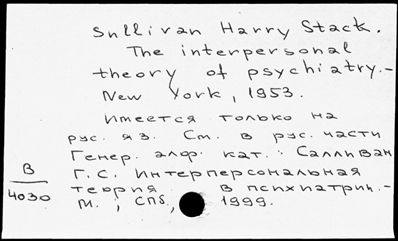 Sullivan Harry Stack.
The interpersonal
theory of psychiatry.-
New York, 1953.
Имеется только на
рус. яз. См. в рус. части
Генер. алф. кат.: Салливан
Г.С. Интерперсональная
теория в психиатрии.-
М.; СПб, 1999.
В
4030